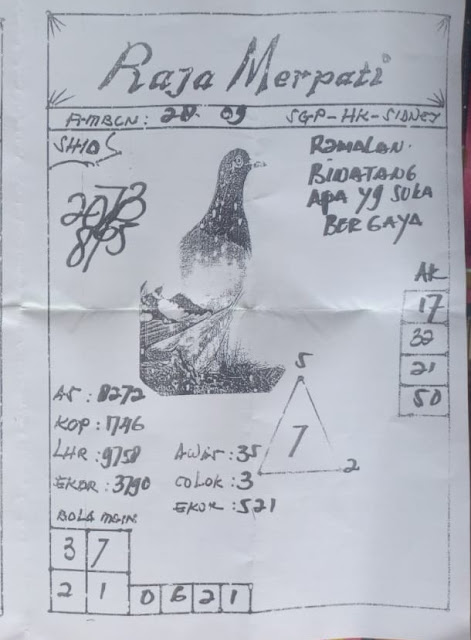 Raja Merpati
28. 09 SGP-HK-SIDNEY
SHIO
2073
865
RAMALAN.
BINATANG
APA YG SUKA
BERGAYA
AK
17
32
21
50
AS : 8272
KOP : 1746
LHR : 9758
EKOR : 3790
5
7
2
AWAS : 35
COLOK : 3
EKOR : 521
BOLA MAIN
3 7
2 1
0 6 2 1